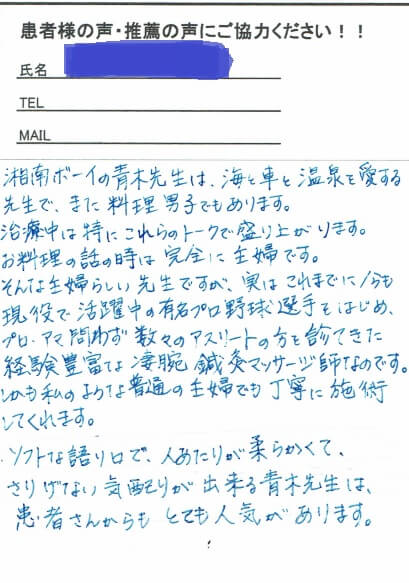 患者様の声・推薦の声にご協力ください！！
氏名
TEL
MAIL
湘南ボーイの青木先生は、海と車と温泉を愛する
先生で、また料理男子でもあります。
治療中は特にこれらのトークで盛り上がります。
お料理の話の時は完全に主婦です。
そんな主婦らしい先生ですが、実はこれまでに
現役で活躍中の有名プロ野球選手をはじめ、
プロ・アマ問わず数々のアスリートの方を診てきた
経験豊富な凄腕鍼灸マッサージ師なのです。
しかも私のような普通の主婦でも丁寧に施術
してくれます。
ソフトな語り口で、人あたりが柔らかくて、
さりげない気配りが出来る青木先生は、
患者さんからもとても人気があります。